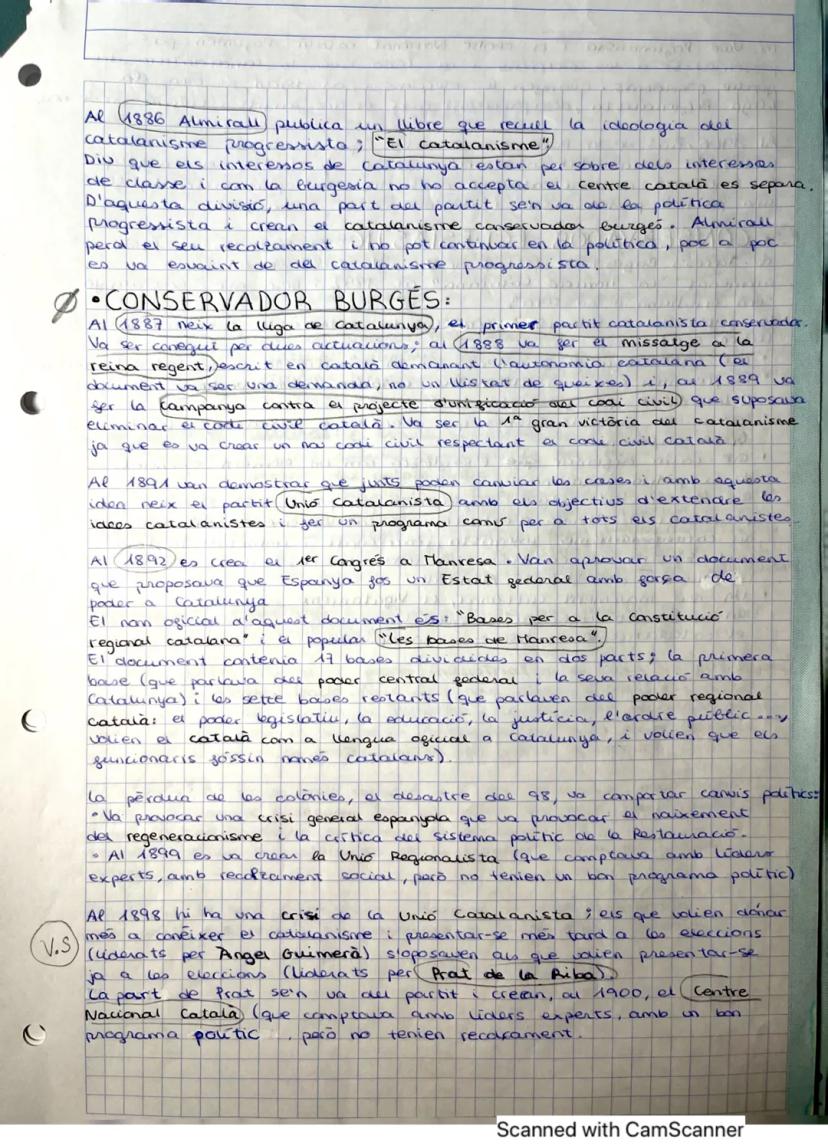 Al 1886 Almirall publica un llibre que recull la ideologia del
catalanisme progressista; "El catalanisme"
Diu que els interessos de Catalunya estan per sobre dels interessos
de classe i com la burgesia no ho accepta el centre català es separa.
D'aquesta divisió, una part del partit se'n va de la política
progressista i creen el catalanisme conservador burgés. Almirall
perd el seu recolzament i no pot continuar en la política, poc a poc
es va esvaint de del catalanisme progressista.
• CONSERVADOR BURGÉS:
Al 1887 neix la lliga de Catalunya, el primer partit catalanista conservador.
Va ser conegut per dues actuacions; al 1888 va fer el missatge a la
reina regent, escrit en català demanant l'autonomia catalana (el
document va ser una demanda, no un llistat de queixes) i, al 1889 va
fer la campanya contra el projecte d'unificació del codi civil que suposava
eliminar el codi civil català. Va ser la 1ª gran victòria del catalanisme
ja que es va crear un nou codi civil respectant el codi civil català.
Al 1891 van demostrar que junts poden canviar les coses i amb aquesta
idea neix el partit Unió Catalanista amb els objectius d'extendre les
idees catalanistes i fer un programa comú per a tots els catalanistes.
Al 1892 es crea el 1er Congrés a Manresa. Van aprovar un document
que proposava que Espanya fos un Estat federal amb força de
poder a Catalunya
El nom oficial d'aquest document és: "Bases per a la Constitució
regional catalana" i el popular "les bases de Manresa".
El document contenia 17 bases dividides en dos parts; la primera
base (que parlava del poder central federal i la seva relació amb
Catalunya) i les sette bases restants (que parlaven del poder regional
català: el poder legislatiu, la educació, la justícia, l'ordre públic...,
volien el català com a llengua oficial a Catalunya, i volien que els
funcionaris fóssin només catalans).
La pèrdua de les colònies, el desastre del 98, va comportar canvis polítics:
• Va provocar una crisi general espanyola que va provocar el naixement
del regeneracionisme i la crítica del sistema polític de la Restauració.
• Al 1899 es va crear la Unió Regionalista (que comptava amb líders
experts, amb recolzament social, però no tenien un bon programa polític)
Al 1898 hi ha una crisi de la Unió Catalanista; els que volien donar
més a conèixer el catalanisme i presentar-se més tard a les eleccions
V.S
(liderats per Àngel Guimerà) s'oposaven als que volien presentar-se
ja a les eleccions (liderats per Prat de la Riba).
La part de Prat se'n va del partit i creen, al 1900, el Centre
Nacional Català (que comptava amb líders experts, amb un bon
programa polític, però no tenien recolzament.
Scanned with CamScanner